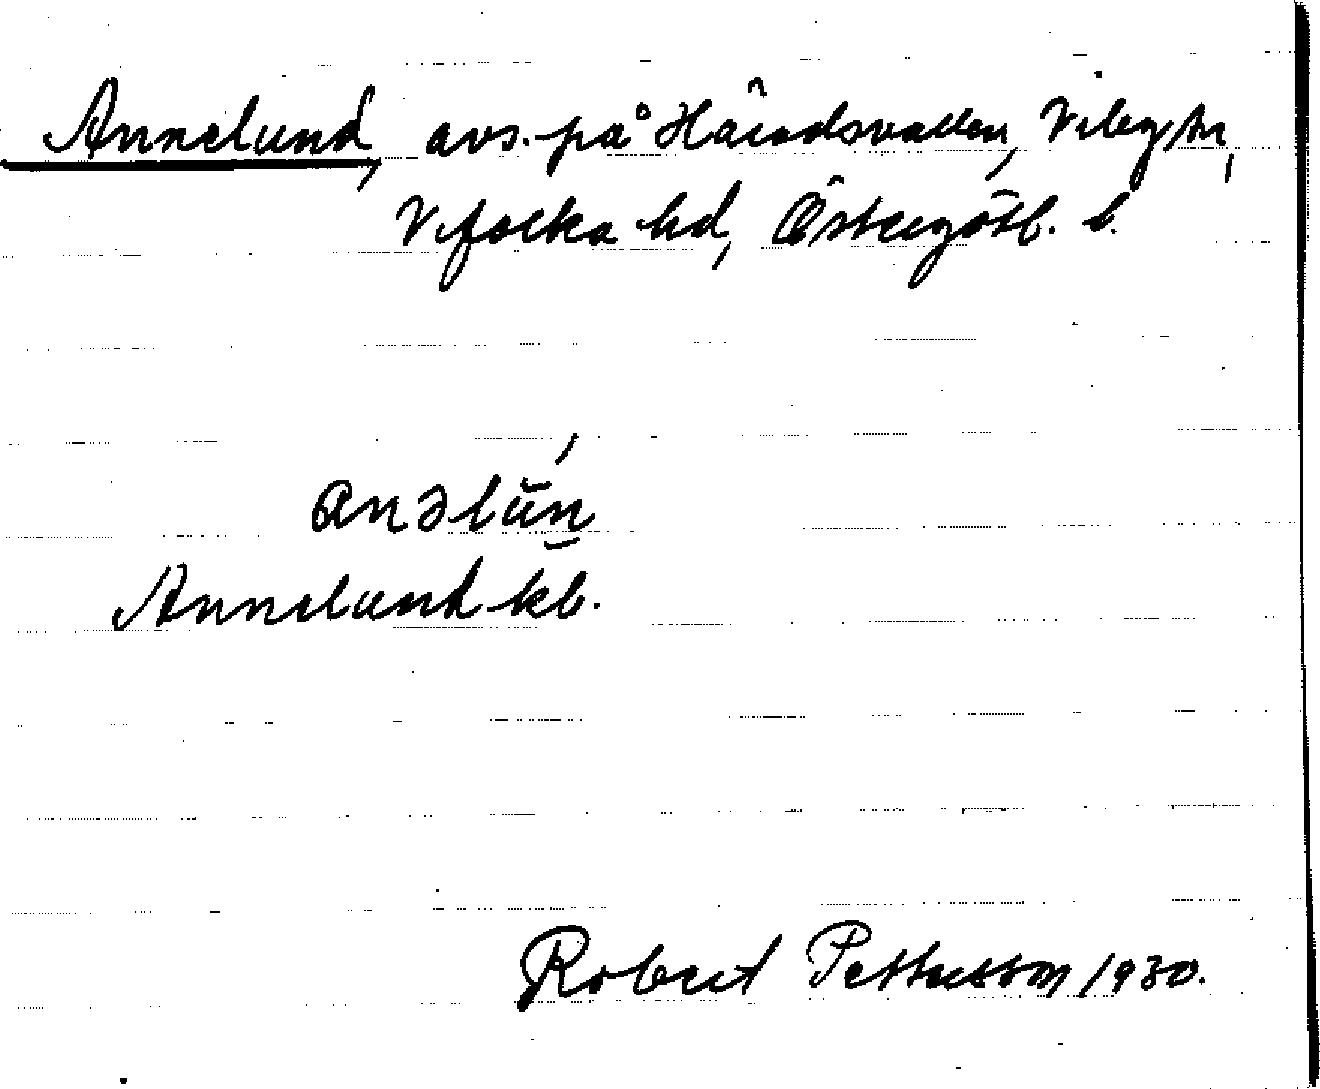 Annelund, avs. på Häradsvallen, Viby sn,
Vifolka hd, Östergötl. l.
anəlun
Annelund kb.
Robert Pettersson 1930.